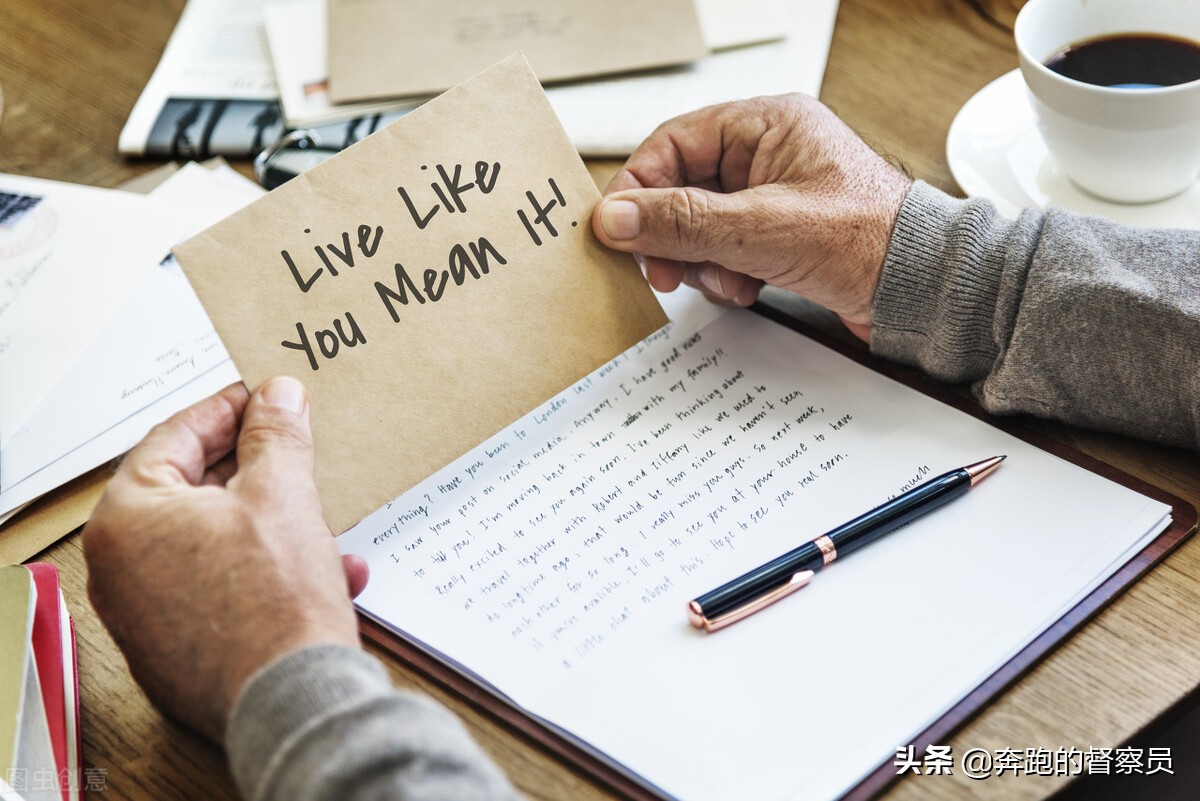 Live Like
You Mean It!
everything? Have you been to London last week? I though
I saw your post on social media. Anyway, I have good news
to you! I'm moving back in town with my family!!
Really excited to see you again soon. I've been thinking about
we travel together with Robert and Tiffany like we used to
do long time ago, that would be fun since we haven't seen
each other for so long. I really miss you guys. So next week,
if you're avalible, I'll go to see you at your house to have
a little chat about this. Hope to see you real soon.
so much
头条 @奔跑的督察员
图虫创意